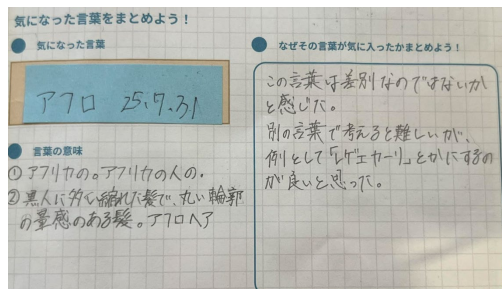 気になった言葉をまとめよう！
気になった言葉
アフロ 25.7.31
言葉の意味
① アフリカの。アフリカの人の。
② 黒人に多い縮れた髪で、丸い輪郭
の量感のある髪。アフロヘア
なぜその言葉が気に入ったかまとめよう！
この言葉は差別なのではないか
と感じた。
別の言葉で考えると難しいが、
例として「レゲエカーリ」とかにするの
が良いと思った。